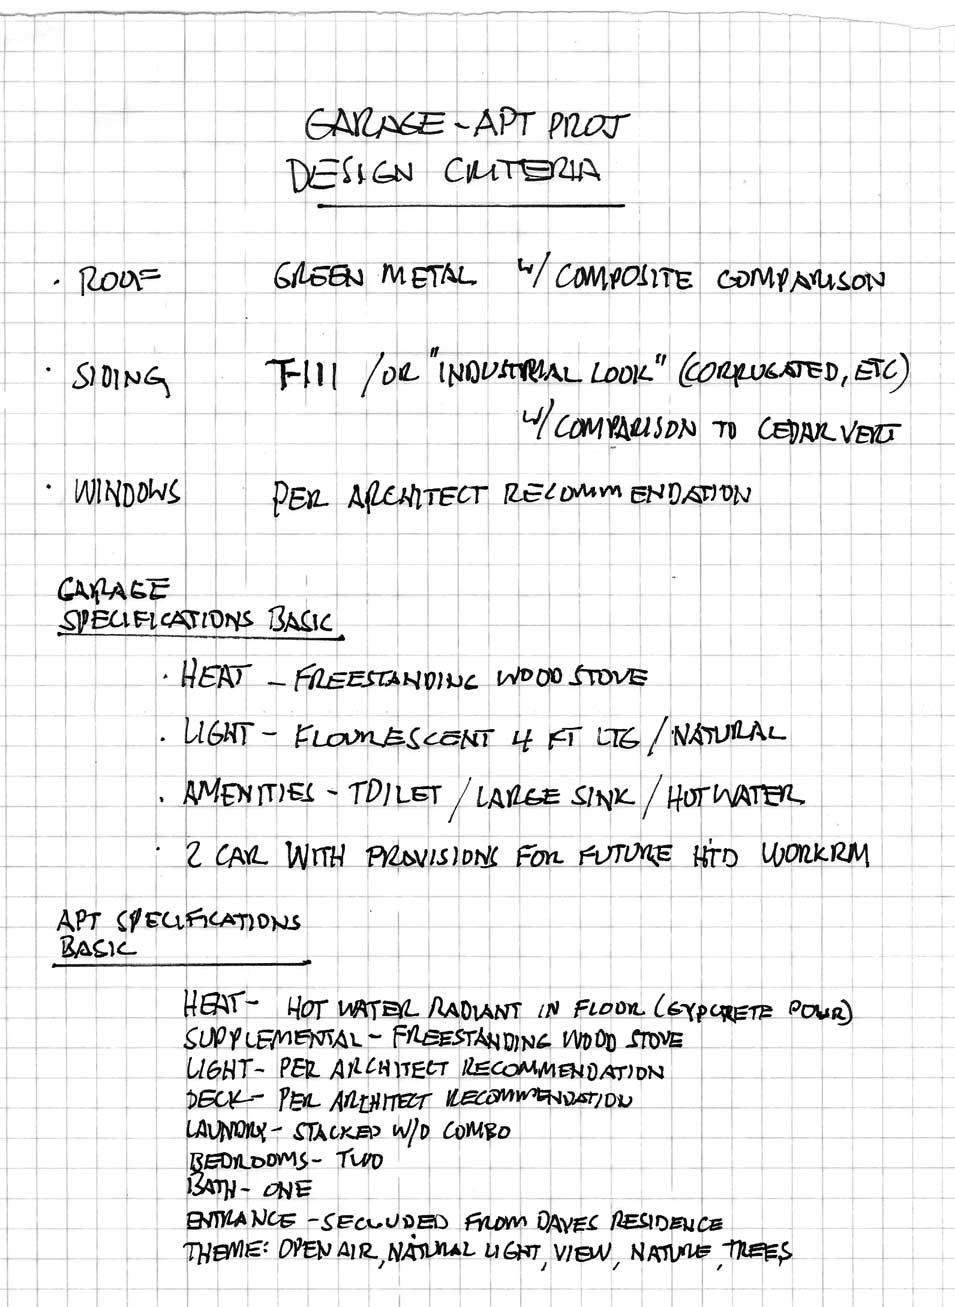 GARAGE-APT PROJ
DESIGN CRITERIA
· ROOF GREEN METAL W/ COMPOSITE COMPARISON
· SIDING T-111 /OR "INDUSTRIAL LOOK" (CORRUGATED, ETC)
W/ COMPARISON TO CEDAR VERT
· WINDOWS PER ARCHITECT RECOMMENDATION
GARAGE
SPECIFICATIONS BASIC
· HEAT - FREESTANDING WOOD STOVE
· LIGHT - FLOURESCENT 4 FT LTG / NATURAL
· AMENITIES - TOILET / LARGE SINK / HOT WATER
· 2 CAR WITH PROVISIONS FOR FUTURE HTD WORKRM
APT SPECIFICATIONS
BASIC
HEAT - HOT WATER RADIANT IN FLOOR (GYPCRETE POUR)
SUPPLEMENTAL - FREESTANDING WOOD STOVE
LIGHT - PER ARCHITECT RECOMMENDATION
DECK - PER ARCHITECT RECOMMENDATION
LAUNDRY - STACKED W/D COMBO
BEDROOMS - TWO
BATH - ONE
ENTRANCE - SECLUDED FROM DAVES RESIDENCE
THEME: OPEN AIR, NATURAL LIGHT, VIEW, NATURE, TREES